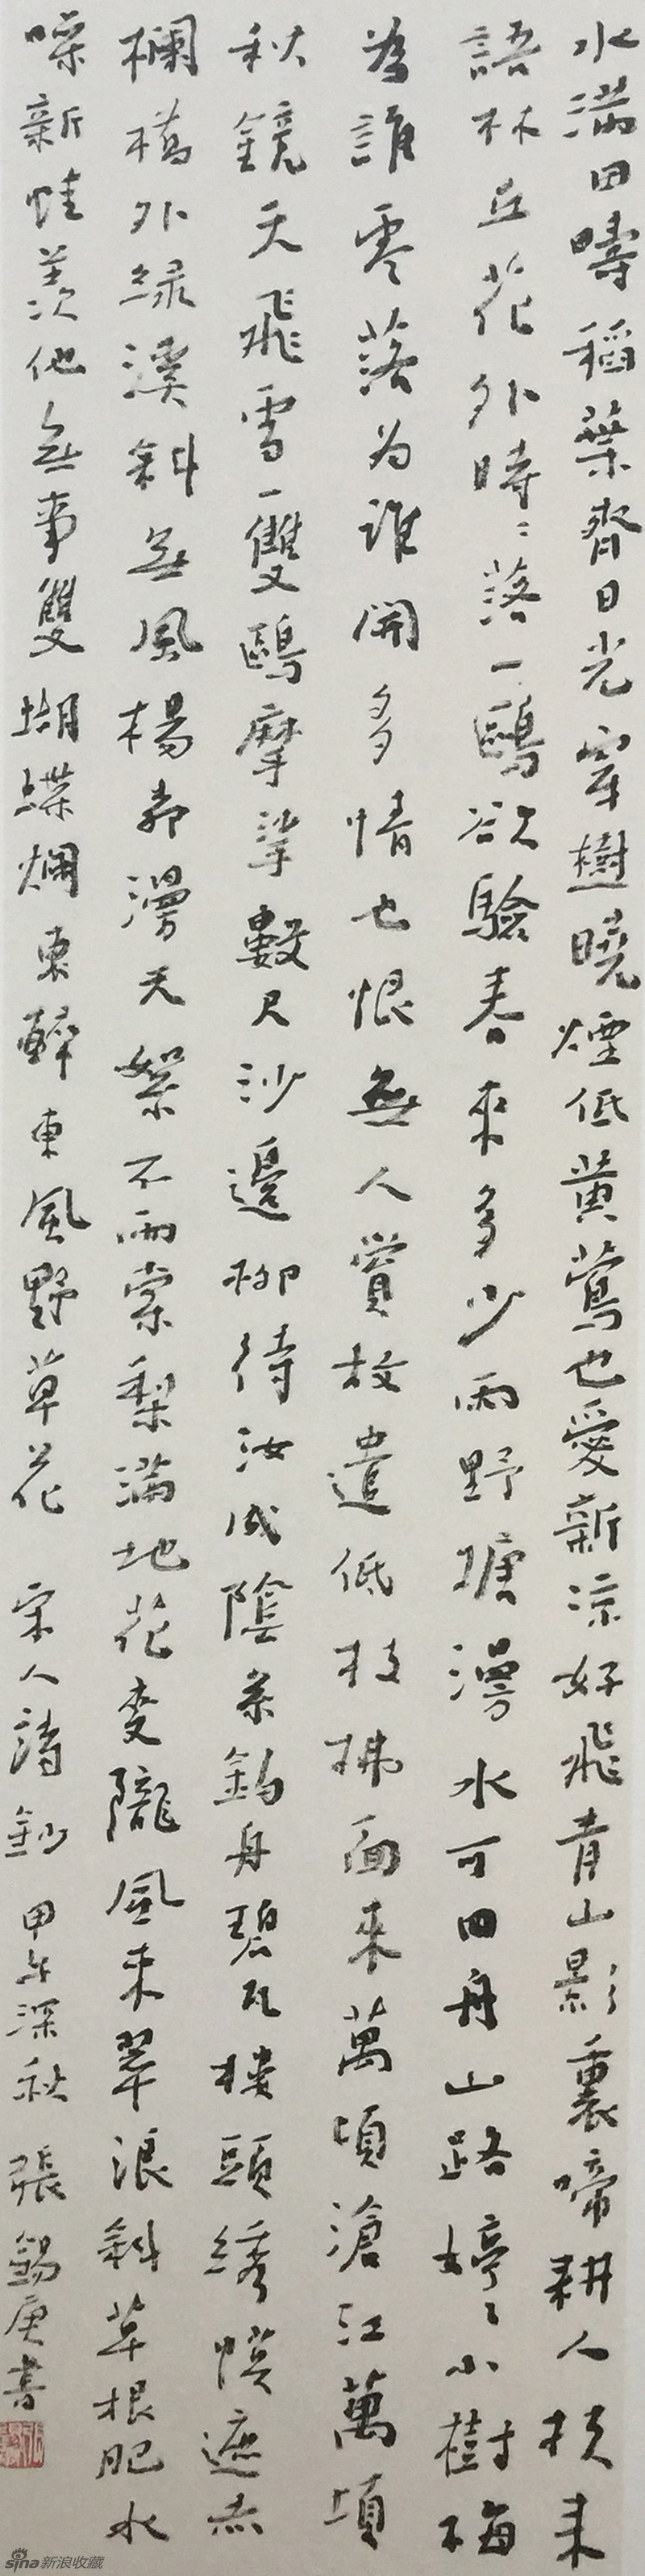 水滿田疇稻葉齊日光穿樹曉煙低黃鶯也愛新涼好飛青山影裏啼耕人扶耒
語林丘花外時〻落一鷗欲驗春來多少雨野塘漫水可回舟山路婷〻小樹梅
為誰零落为誰開多情也恨無人賞故遣低枝拂面來萬頃滄江萬頃
秋鏡天飛雪一雙鷗摩挲數尺沙邊柳待汝成陰系釣舟碧瓦樓頭繡幙遮赤
欄橋外綠溪斜無風楊柳漫天絮不雨棠梨滿地花麥隴風來翠浪斜草根肥水
噪新蛙羨他無事雙蝴蝶爛東醉東風野草花
宋人詩鈔 甲午深秋 張錫庚書
sina新浪收藏